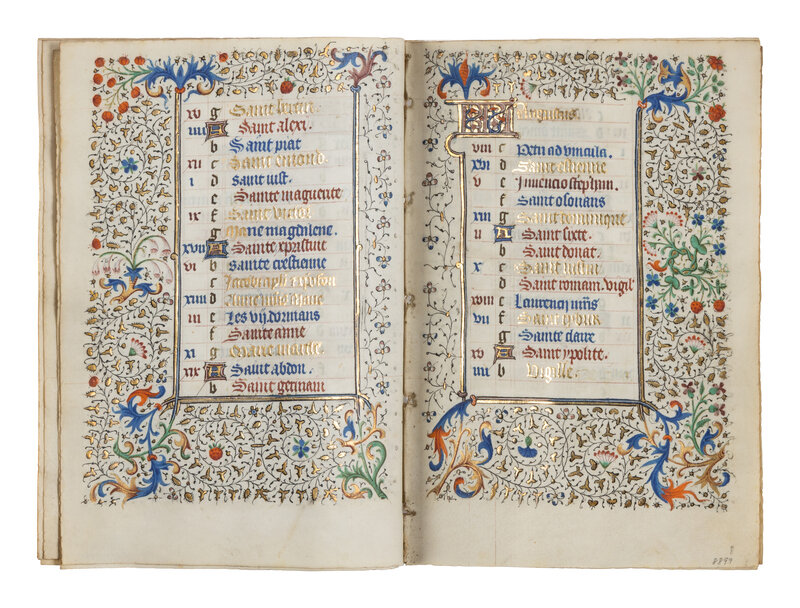 xv g Saint
iiii A Saint alexi.
b Saint piat
xii c Saint
i d saint iust.
e Sainte maguerite
ix f Saint victor
g Marie magdalene.
xvii A Sainte xpistine
vi b sainte crestienne
c Jacob xpofori
xiiii d
iii e Les vij dormans
f Sainte anne
xi g
xix A Saint abdon.
b Saint germain
KL Augustus.
viii c Petri ad vincula.
xvi d Saint estienne
v e Inuencio stephani.
f Saint osouans
xiii g Saint dominique
ii A Saint sixte.
b Saint donat.
x c Saint iustin
d Saint romain. vigil'
xviii e Laurencii
vii f Saint
g Sainte clare
xv A Saint ypolite.
iiii b Vigille.
8899